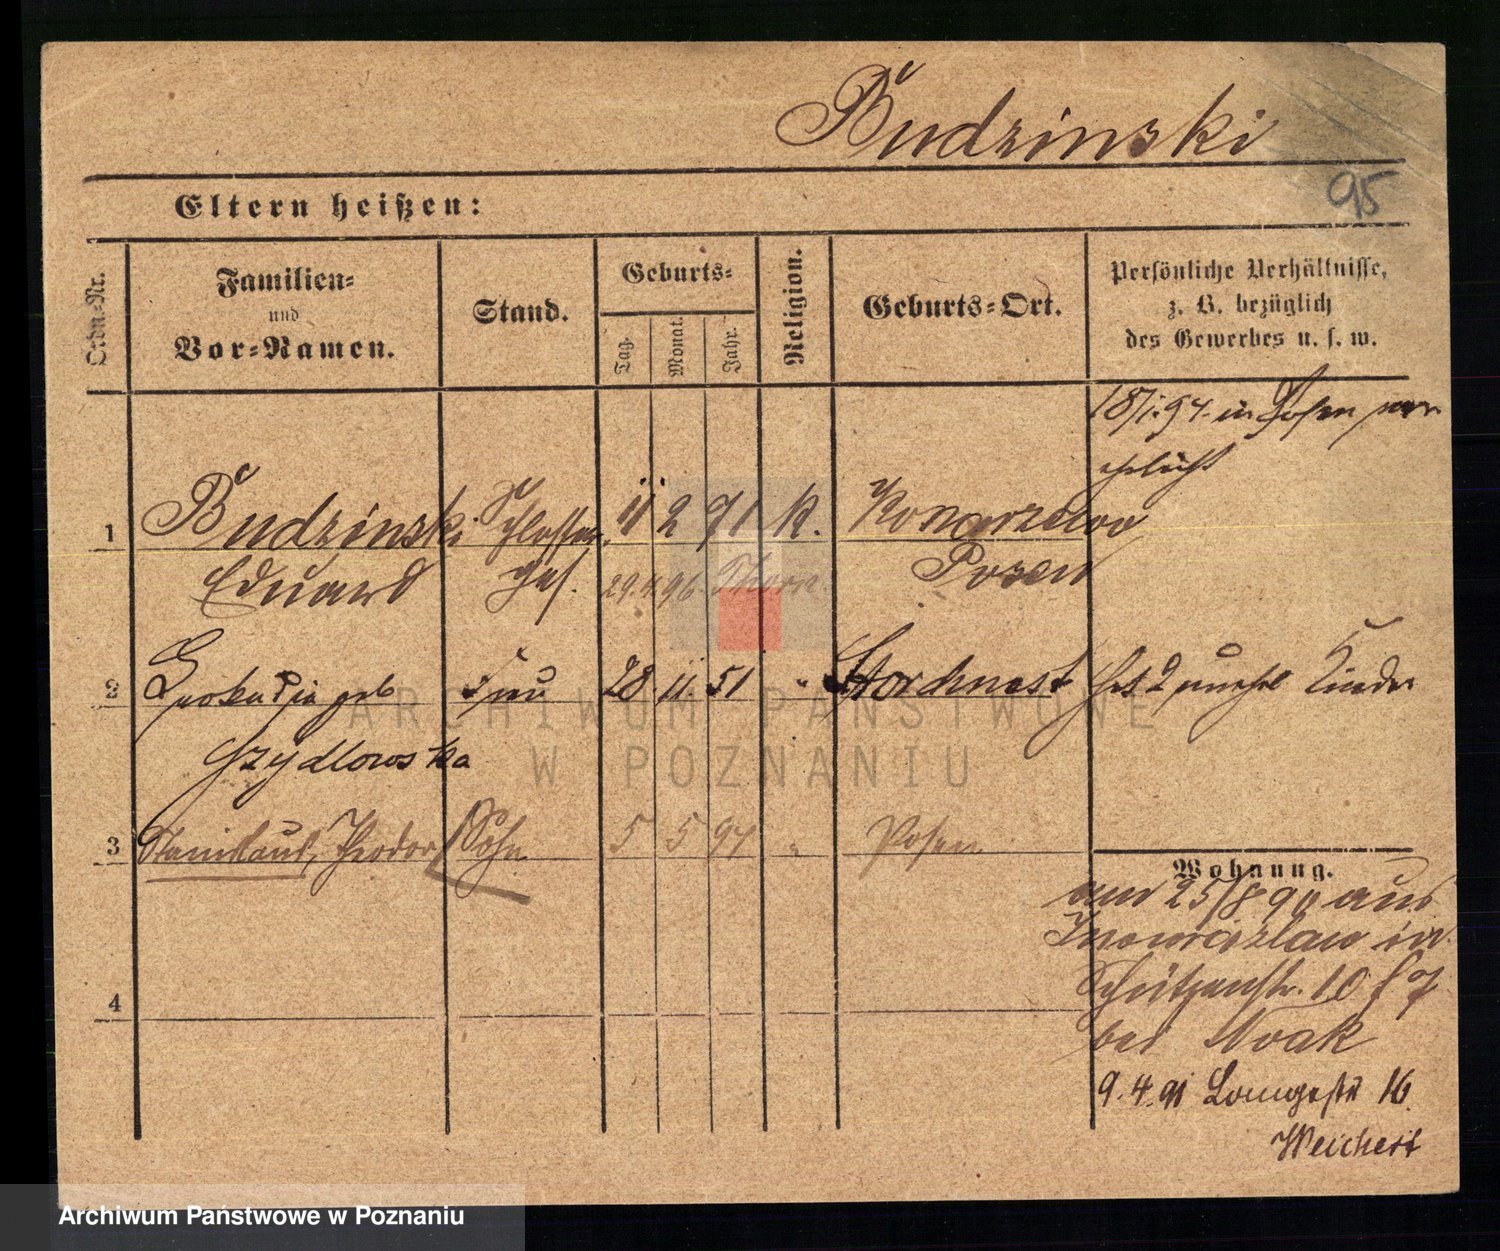 Budzinski
95
Eltern heißen:
Ordn.-Nr.
Familien-
und
Vor-Namen.
Stand.
Geburts-
Tag.
Monat.
Jahr.
Religion.
Geburts-Ort.
Persönliche Verhältnisse,
z. B. bezüglich
des Gewerbes u. s. w.
18/1.94. in Posen ver
ehelicht
1 Budzinski Schlosser 11 2 71 K. Konarzewo
Eduard Ges. 29.4.96 Thorn Posen
2 Leokadja geb Frau 28 11 51 " Storchnest hat 2 unehel Kinder
Szydlowska
3 Stanislaus, Theodor Sohn 5 5 94 " Posen
Wohnung.
am 25/8 90 aus
Inowrazlaw in
4 Schützenstr. 10
bei Noak
9.4.91 Langestr 16
Weichert
ARCHIWUM PAŃSTWOWE
W POZNANIU
Archiwum Państwowe w Poznaniu